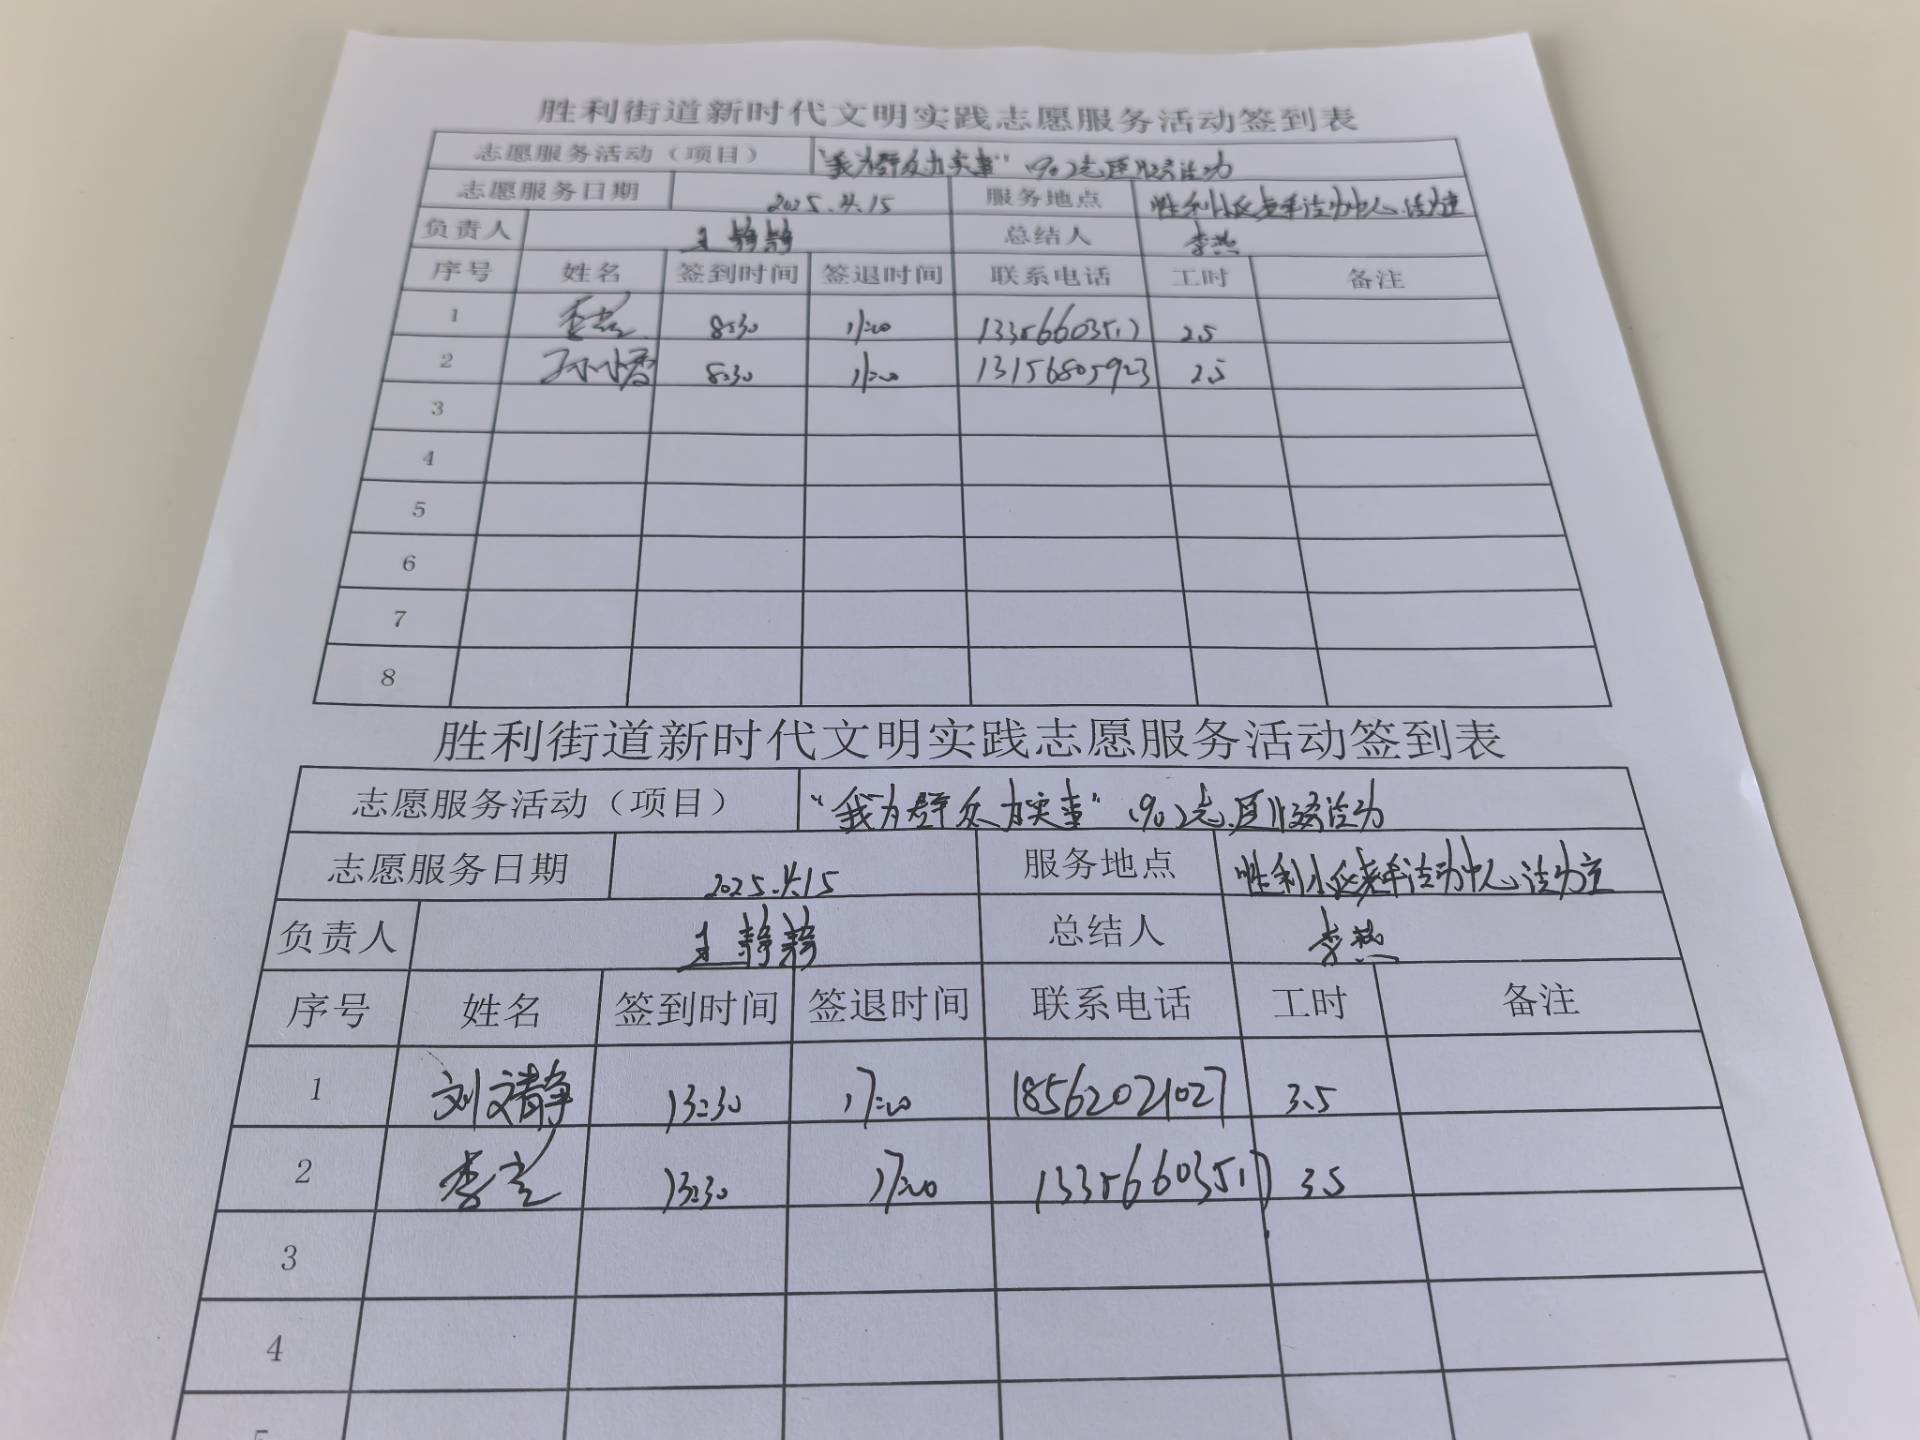 胜利街道新时代文明实践志愿服务活动签到表
志愿服务活动（项目） "我为群众办实事" (90)志愿服务活动
志愿服务日期 2025.4.15 服务地点 胜利小区老年活动中心活动室
负责人 王静静 总结人 李
序号 姓名 签到时间 签退时间 联系电话 工时 备注
1 李 8:30 11:00 13356603517 2.5
2 孙小香 8:30 11:00 13156805923 2.5
3
4
5
6
7
8
胜利街道新时代文明实践志愿服务活动签到表
志愿服务活动（项目） "我为群众办实事" (90)志愿服务活动
志愿服务日期 2025.4.15 服务地点 胜利小区老年活动中心活动室
负责人 王静静 总结人 李
序号 姓名 签到时间 签退时间 联系电话 工时 备注
1 刘文静 13:30 17:00 18562021027 3.5
2 李 13:30 17:00 13356603517 3.5
3
4
5